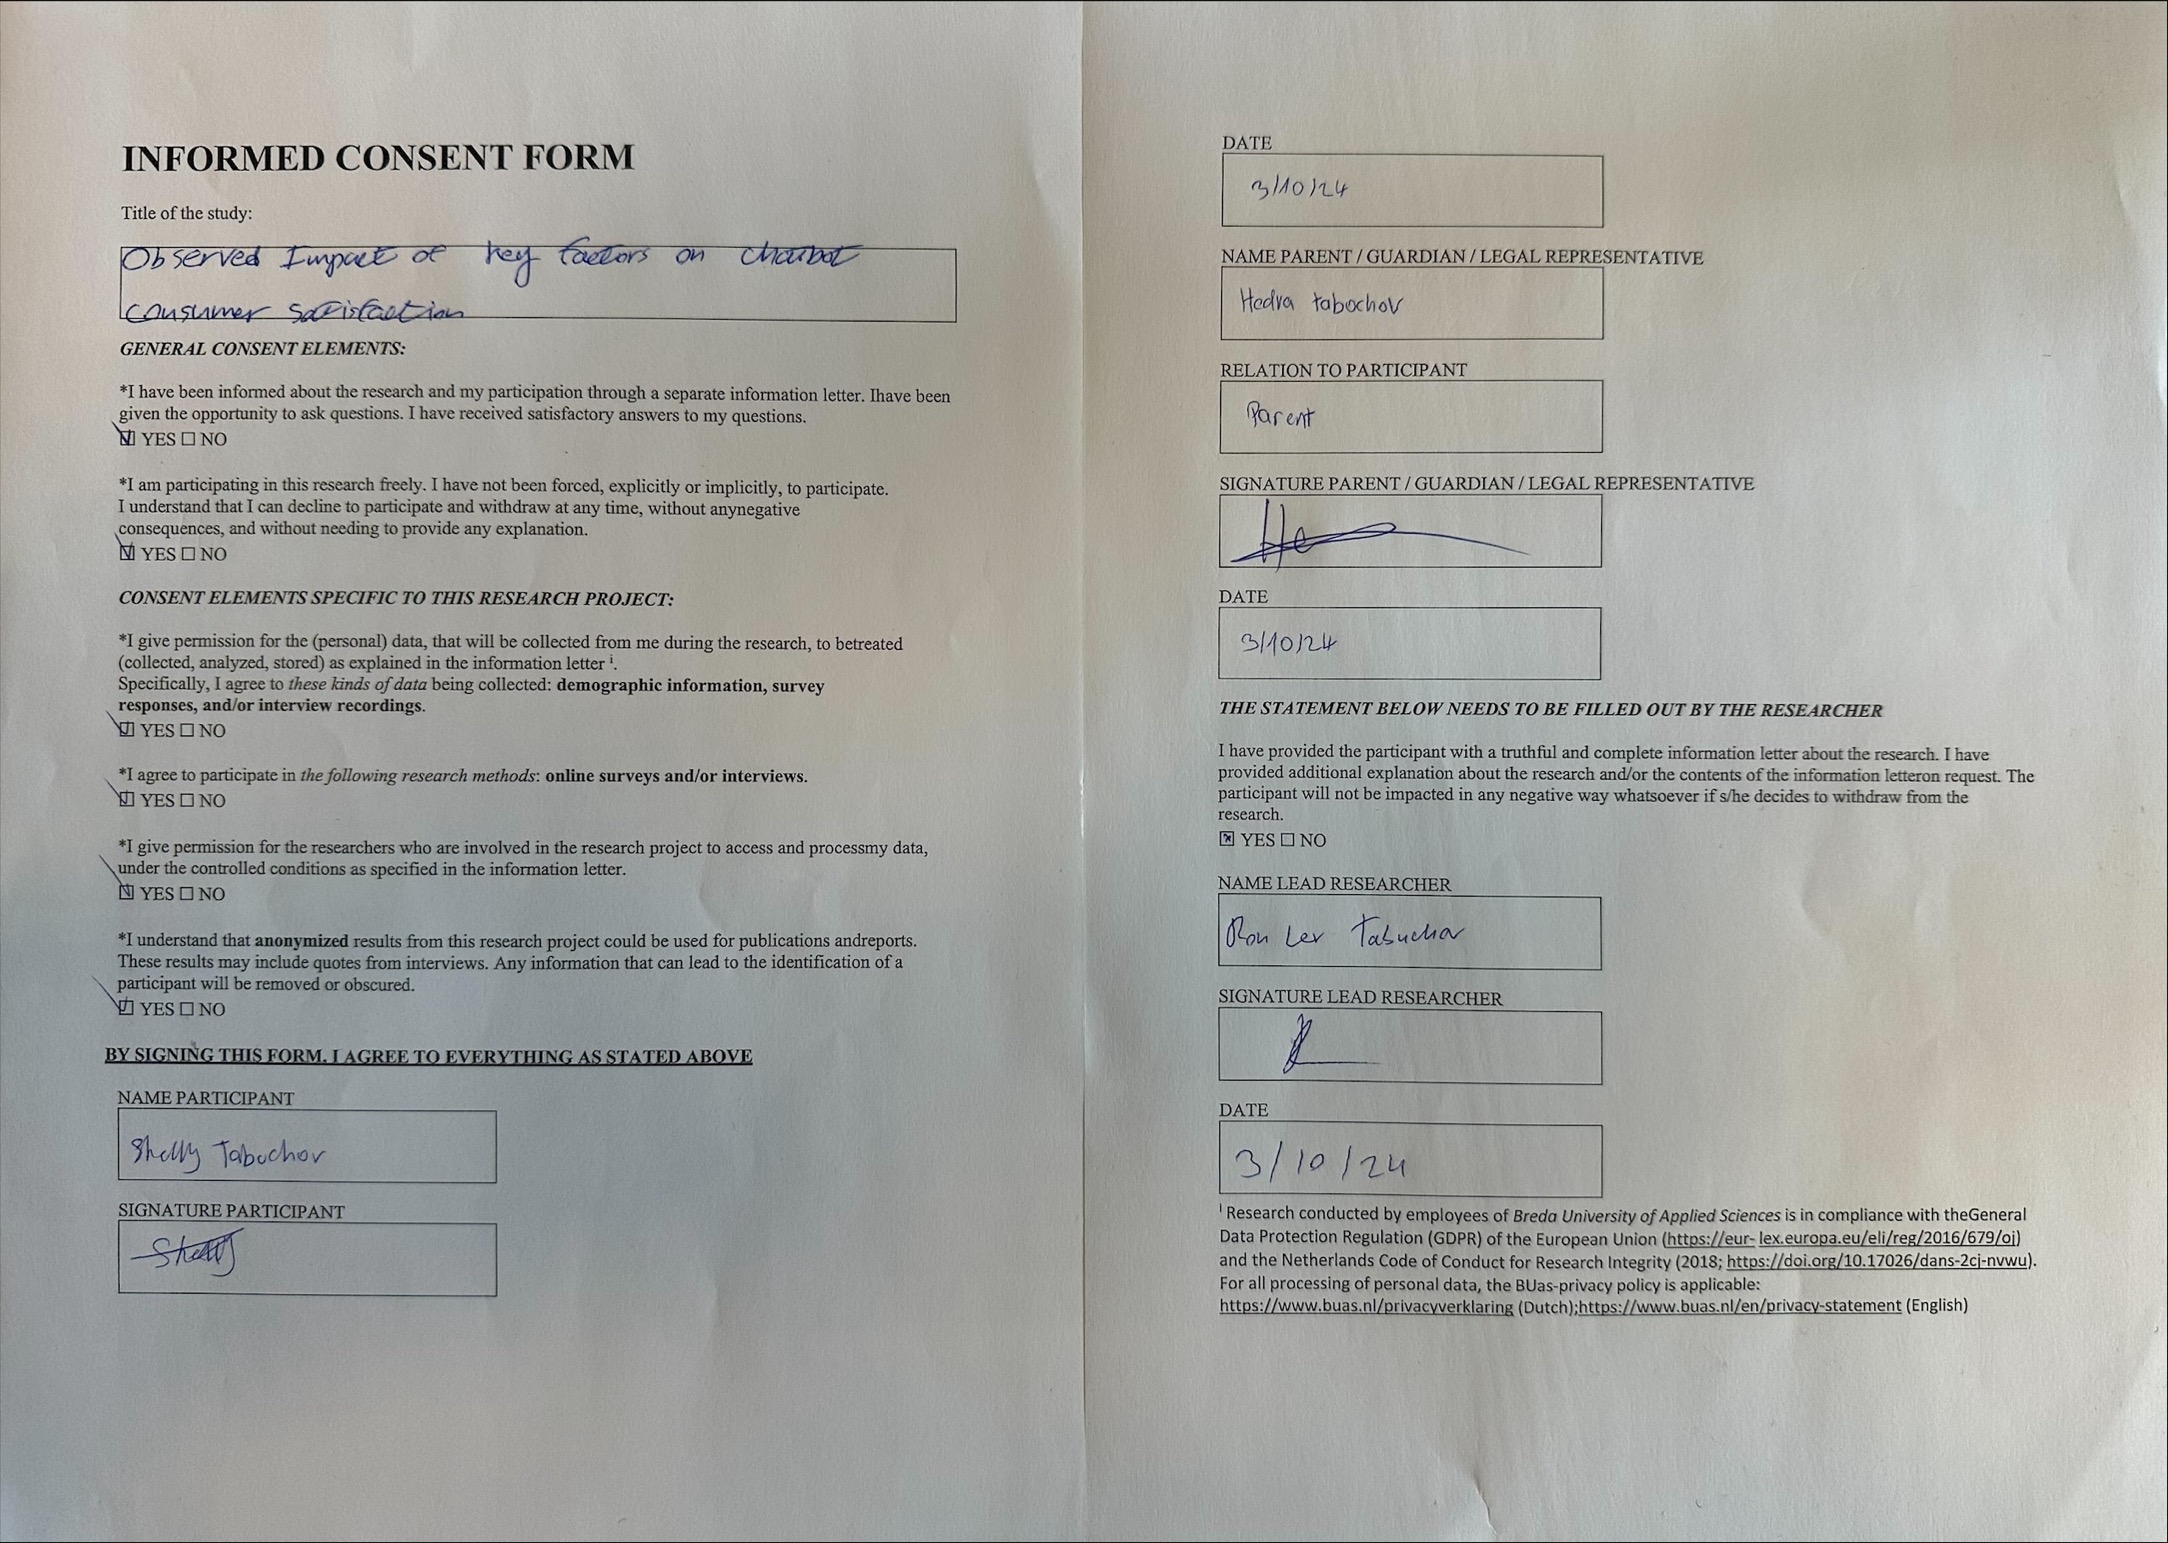 INFORMED CONSENT FORM
Title of the study:
Observed Impact of key factors on chatbot
consumer satisfaction
GENERAL CONSENT ELEMENTS:
*I have been informed about the research and my participation through a separate information letter. Ihave been
given the opportunity to ask questions. I have received satisfactory answers to my questions.
☑ YES ☐ NO
*I am participating in this research freely. I have not been forced, explicitly or implicitly, to participate.
I understand that I can decline to participate and withdraw at any time, without anynegative
consequences, and without needing to provide any explanation.
☑ YES ☐ NO
CONSENT ELEMENTS SPECIFIC TO THIS RESEARCH PROJECT:
*I give permission for the (personal) data, that will be collected from me during the research, to betreated
(collected, analyzed, stored) as explained in the information letter i.
Specifically, I agree to these kinds of data being collected: demographic information, survey
responses, and/or interview recordings.
☑ YES ☐ NO
*I agree to participate in the following research methods: online surveys and/or interviews.
☑ YES ☐ NO
*I give permission for the researchers who are involved in the research project to access and processmy data,
under the controlled conditions as specified in the information letter.
☑ YES ☐ NO
*I understand that anonymized results from this research project could be used for publications andreports.
These results may include quotes from interviews. Any information that can lead to the identification of a
participant will be removed or obscured.
☑ YES ☐ NO
BY SIGNING THIS FORM, I AGREE TO EVERYTHING AS STATED ABOVE
NAME PARTICIPANT
Shelly Tabochov
SIGNATURE PARTICIPANT
Shelly
DATE
3/10/24
NAME PARENT / GUARDIAN / LEGAL REPRESENTATIVE
Hedva tabochov
RELATION TO PARTICIPANT
Parent
SIGNATURE PARENT / GUARDIAN / LEGAL REPRESENTATIVE
DATE
3/10/24
THE STATEMENT BELOW NEEDS TO BE FILLED OUT BY THE RESEARCHER
I have provided the participant with a truthful and complete information letter about the research. I have
provided additional explanation about the research and/or the contents of the information letteron request. The
participant will not be impacted in any negative way whatsoever if s/he decides to withdraw from the
research.
☒ YES ☐ NO
NAME LEAD RESEARCHER
Ron Lev Tabuchov
SIGNATURE LEAD RESEARCHER
DATE
3/10/24
i Research conducted by employees of Breda University of Applied Sciences is in compliance with theGeneral
Data Protection Regulation (GDPR) of the European Union (https://eur- lex.europa.eu/eli/reg/2016/679/oj)
and the Netherlands Code of Conduct for Research Integrity (2018; https://doi.org/10.17026/dans-2cj-nvwu).
For all processing of personal data, the BUas-privacy policy is applicable:
https://www.buas.nl/privacyverklaring (Dutch);https://www.buas.nl/en/privacy-statement (English)